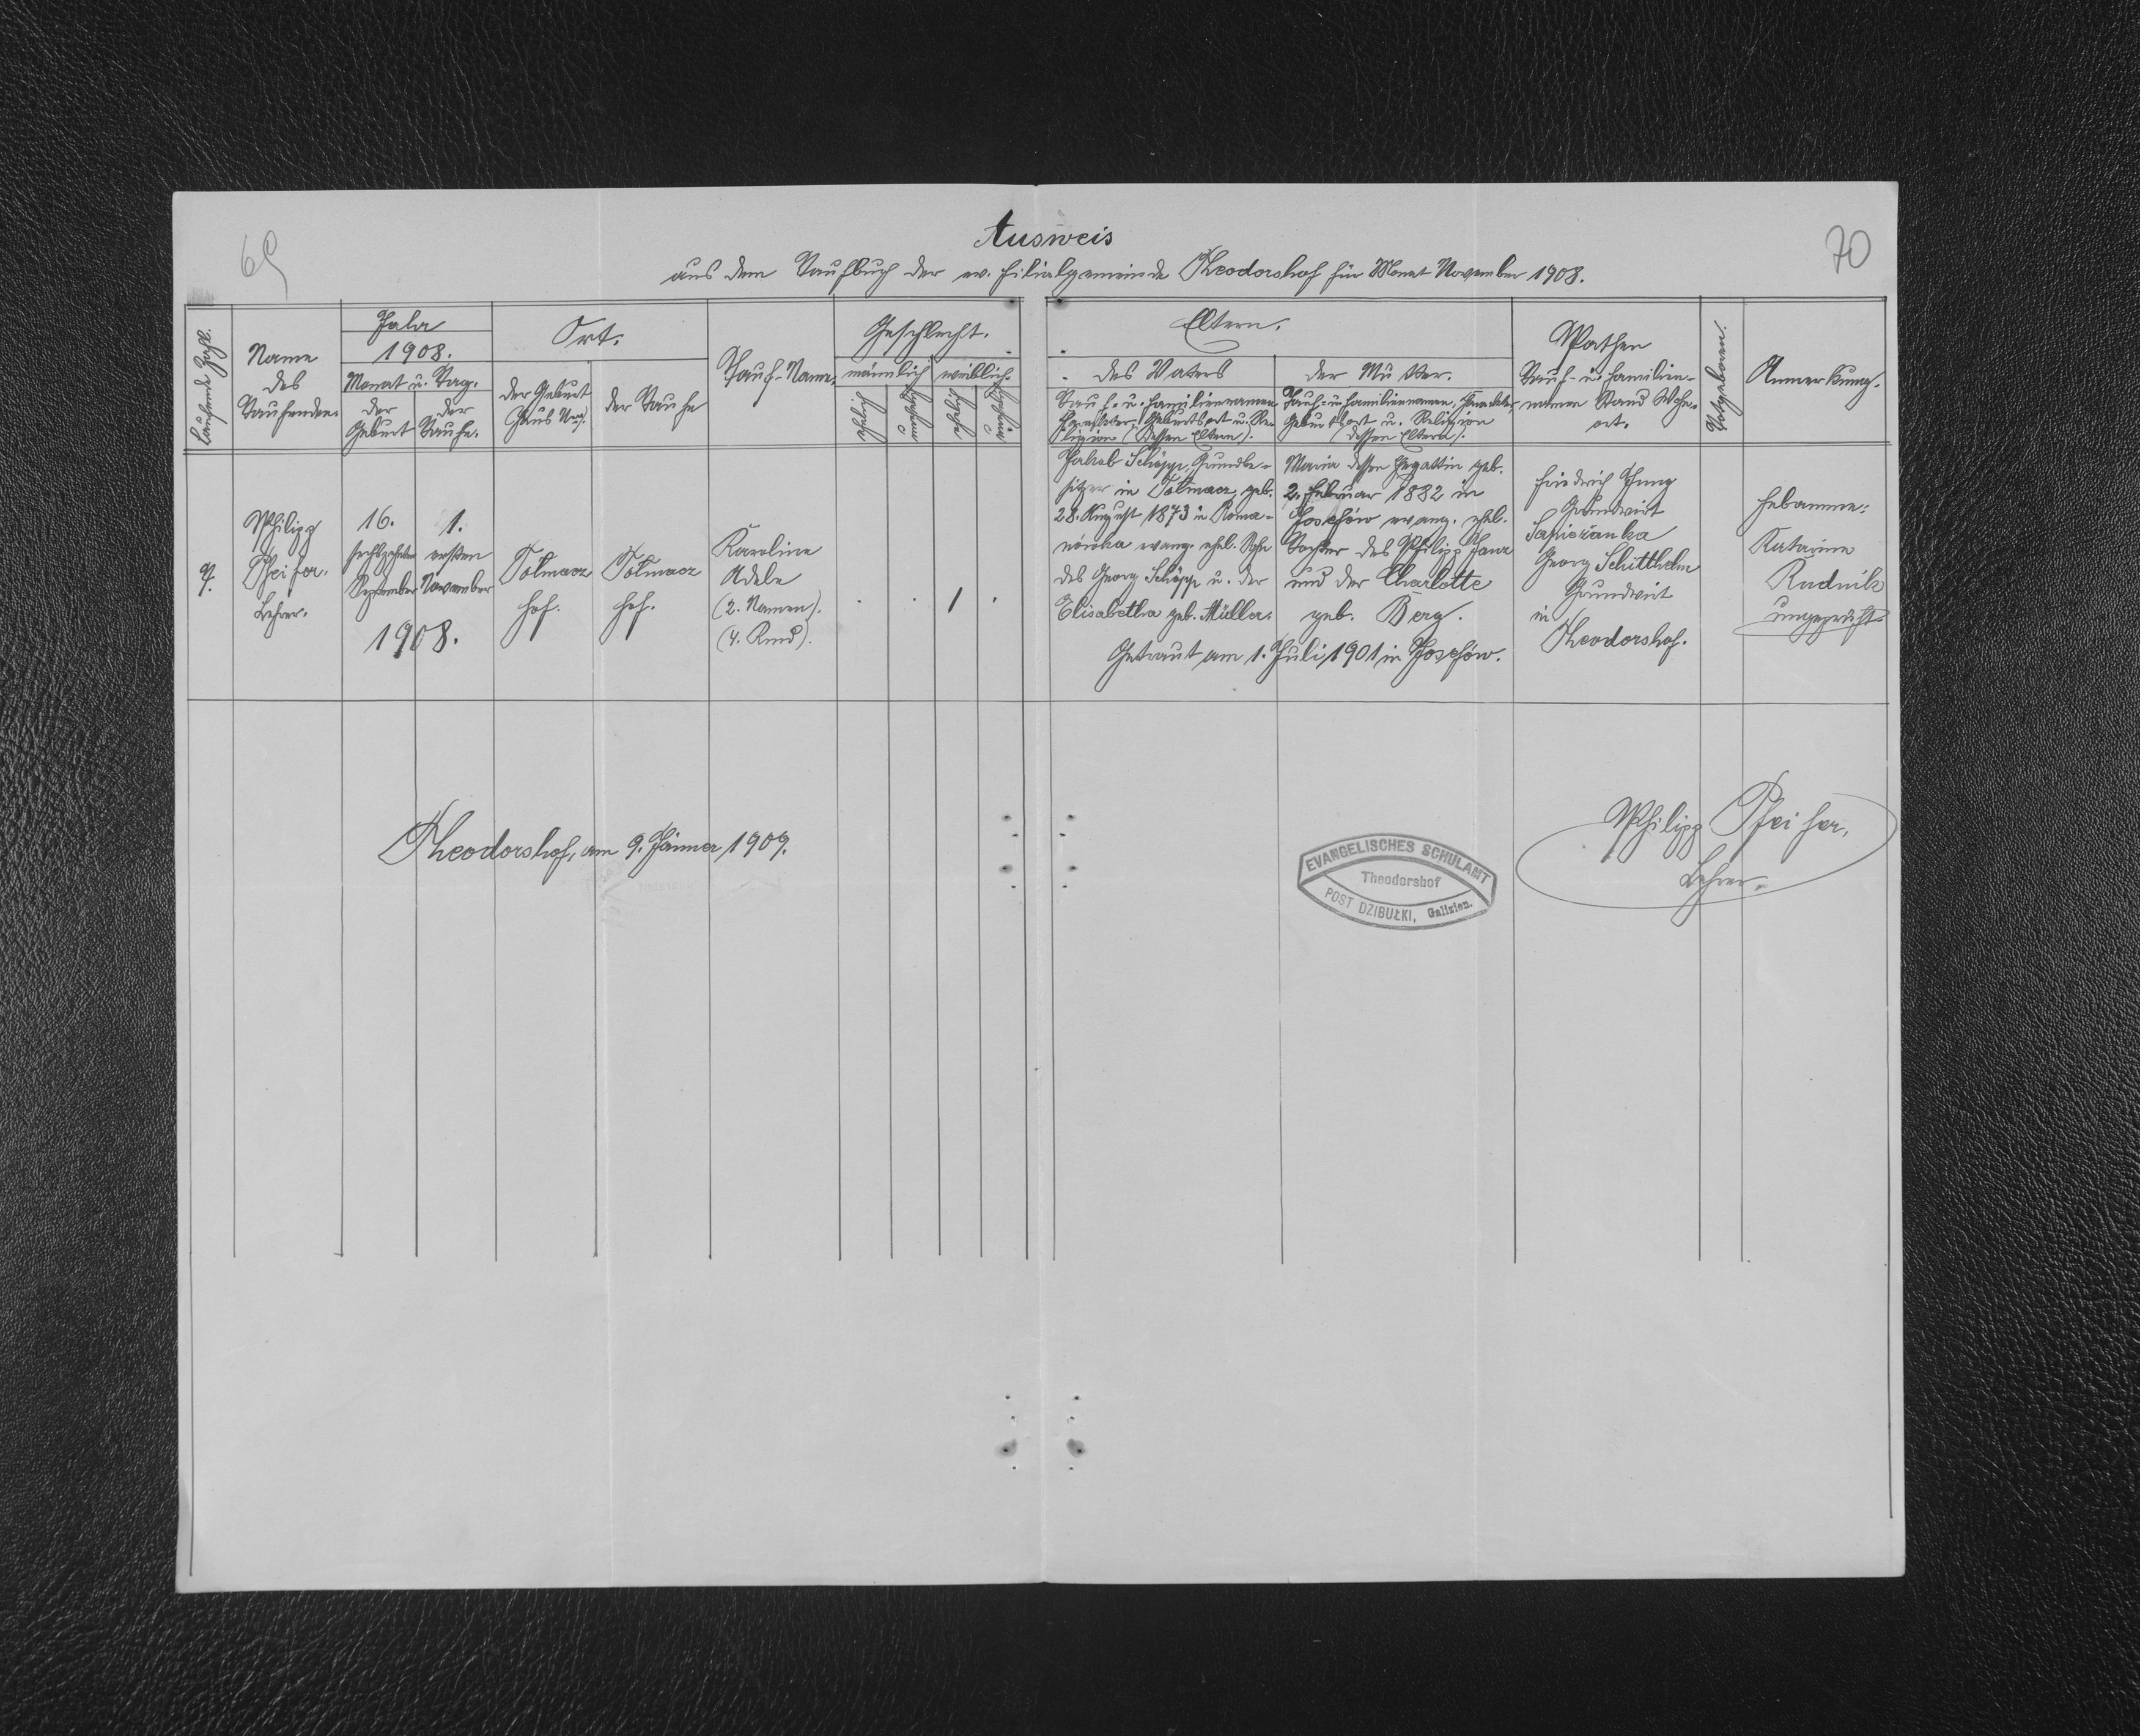 69
70
Ausweis
aus dem Taufbuch der ev. Filialgemeinde Theodorshof für Monat November 1908.
laufende Zahl.
Name
des
Taufenden.
Jahr
1908.
Monat u. Tag.
der
Geburt
der
Taufe.
Ort.
der Geburt
(Haus Nro).
der Taufe
Tauf-Name.
Geschlecht.
männlich
weiblich.
ehelich
unehelich
ehelich
unehelich
Eltern.
des Vaters
Tauf- u. Familiennamen
Charakter, Geburtsort u. Re-
ligion (dessen Eltern).
der Mutter.
Tauf- u. Familiennamen, Charakter,
Geburtsort u. Religion
(dessen Eltern).
Pathen
Tauf- u. Familien-
namen Stand Wohn-
ort.
Totgeboren.
Anmerkung.
9.
Philipp
Pfeifer.
Lehrer.
16.
sechszehnten
September
1.
ersten
November
1908.
Tołmacz
hof.
Tołmacz
hof.
Karoline
Adele
(2. Namen).
(4. Kind).
1
Jakob Schöpp, Grundbe-
sitzer in Tołmacz, geb.
28. August 1873 in Roma-
nówka evang. ehel. Sohn
des Georg Schöpp u. der
Elisabetha geb. Müller.
Maria dessen Ehegattin geb.
2. Februar 1882 in
Josefów evang. ehel.
Tochter des Philipp Janz
und der Charlotte
geb. Berg.
Getraut am 1. Juli 1901 in Josefów.
Friedrich Jung
Grundwirt
Sapieżanka
Georg Schittlhelm
Grundwirt
in
Theodorshof.
Hebamme:
Katarina
Rudnik
ungeprüft
Theodorshof, am 9. Jänner 1909.
EVANGELISCHES SCHULAMT
Theodorshof
POST DZIBUŁKI, Galizien.
Philipp Pfeifer,
Lehrer.